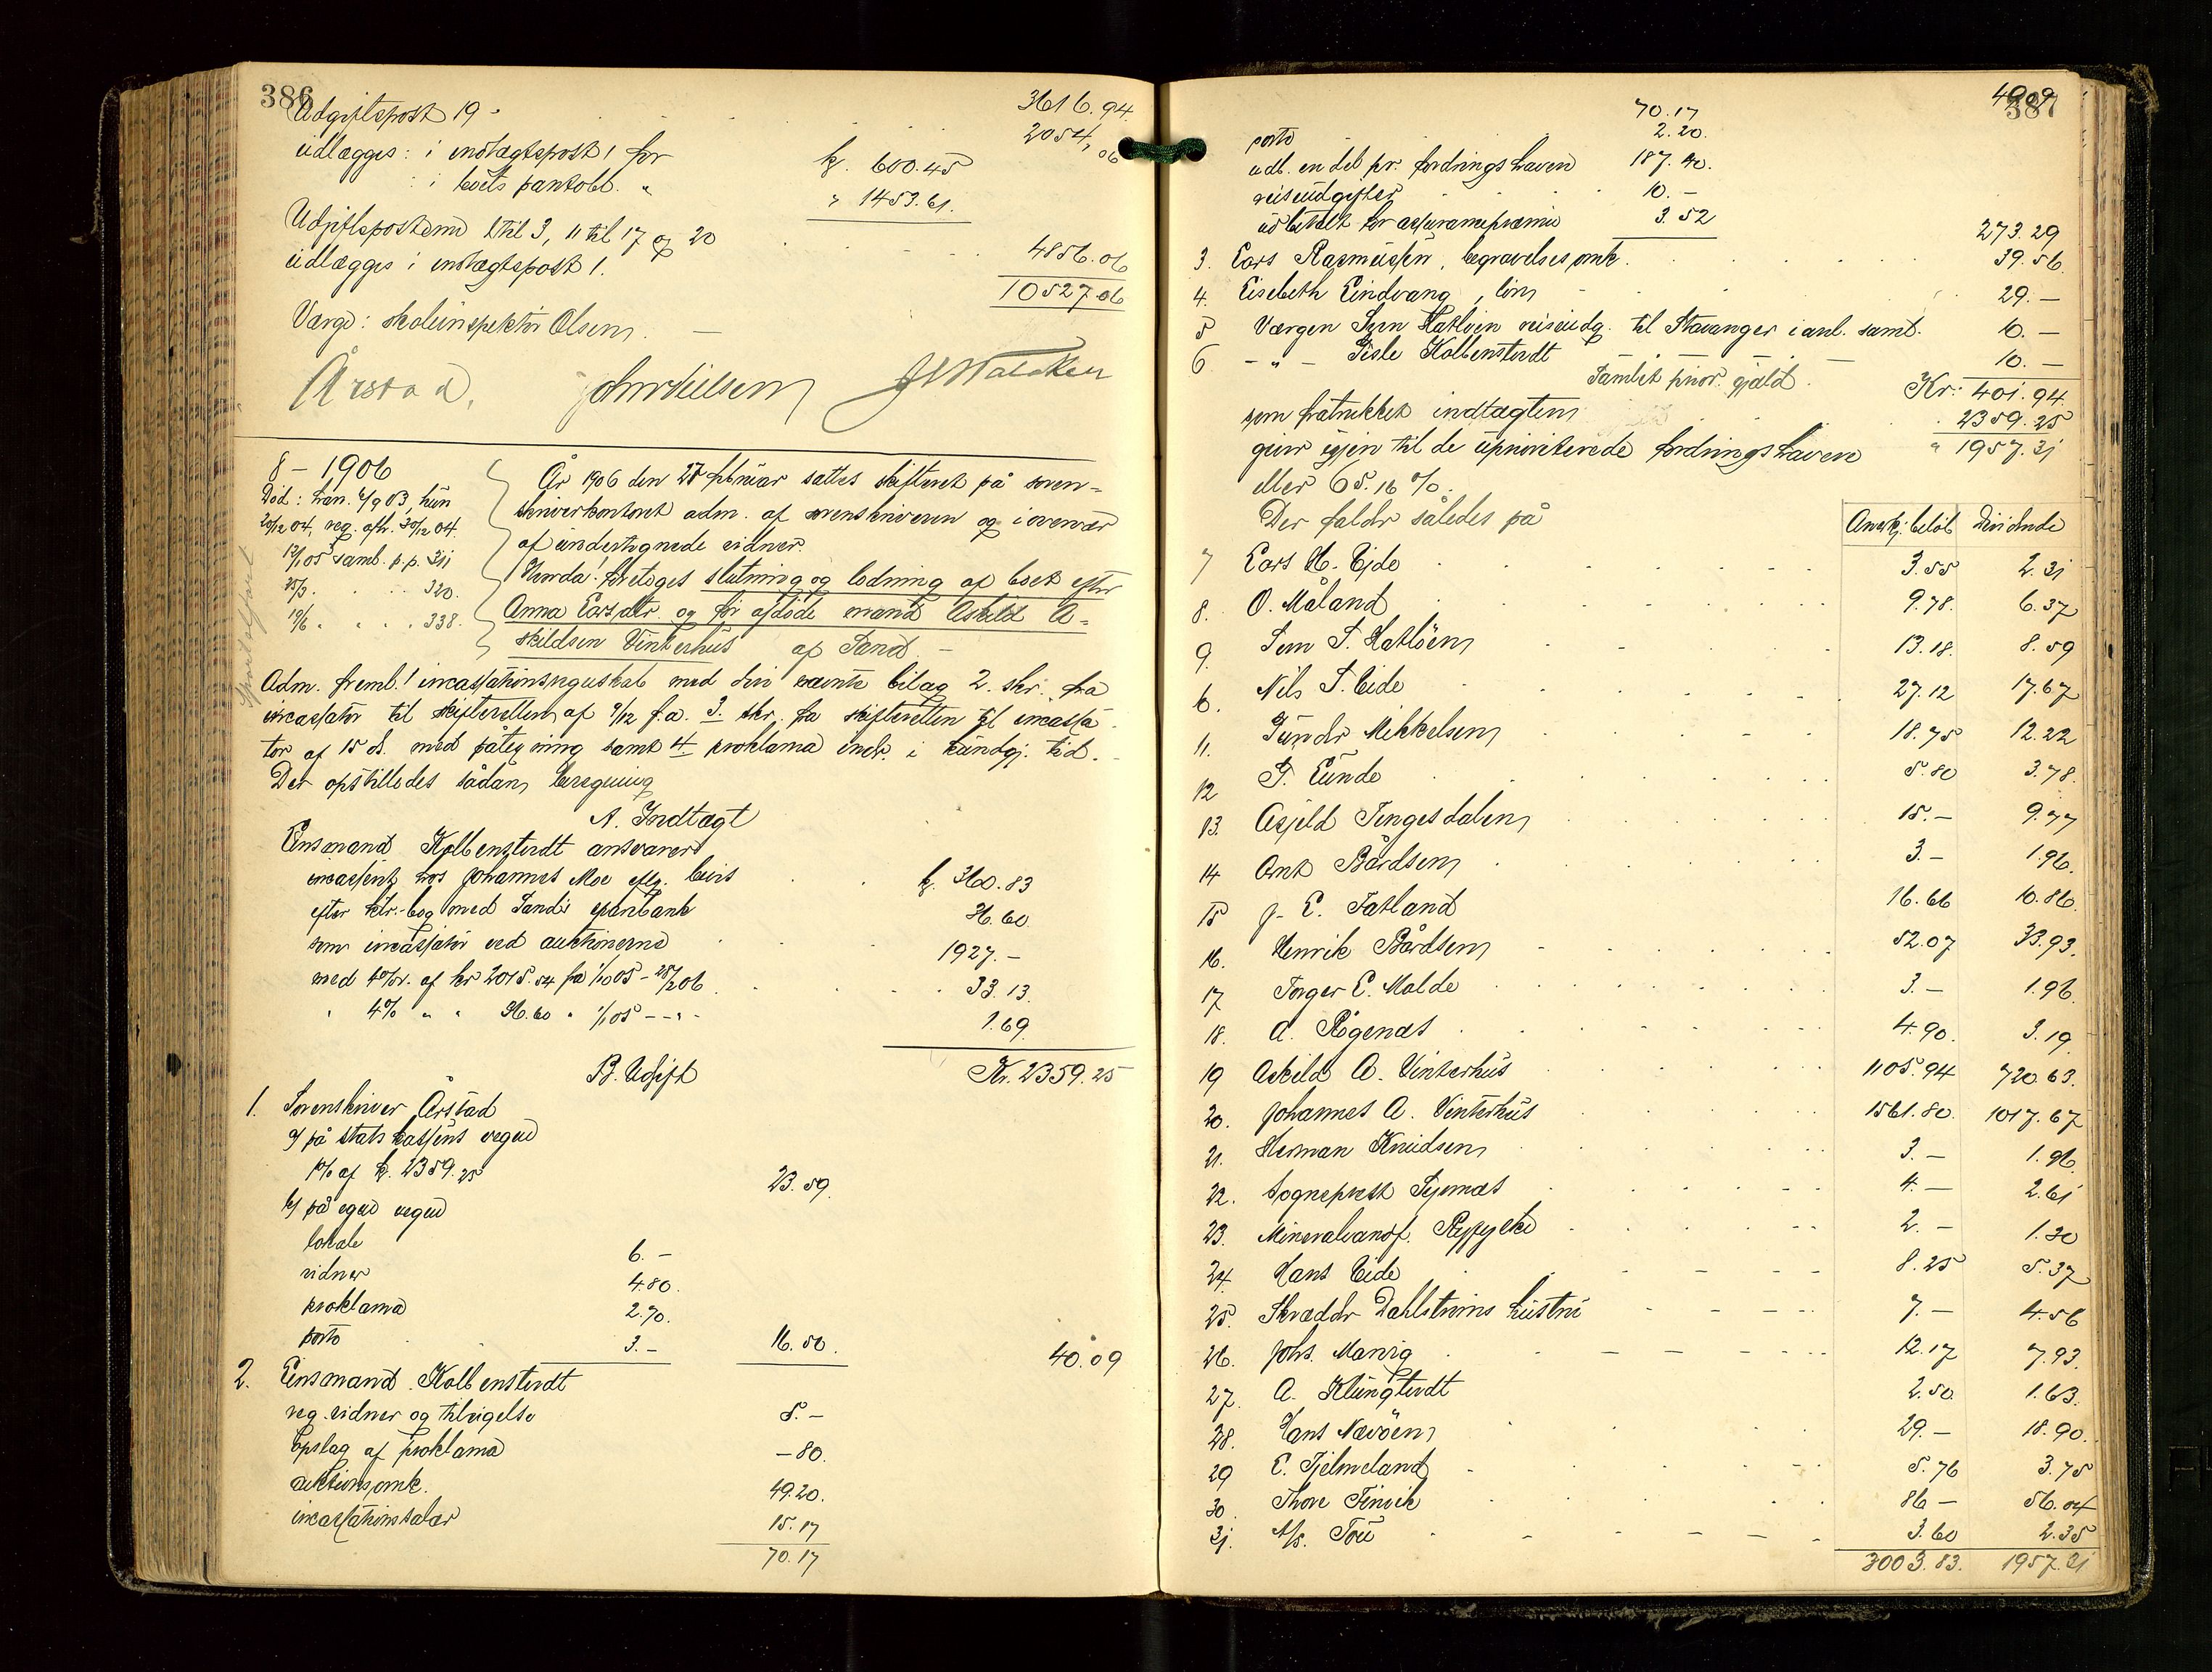 386
Udgiftspost 19 - 3616.94
udlægges: i indtægtspost 1 for k. 600.45 2054,06
: i boets pantobl. " " 1453.61.
Udgiftsposterne 1 til 3, 11 til 17 og 20
udlægges i indtægtspost 1. 4856.06
10527.06
Værge: skoleinspektør Olsen. —
Årstad, John Nielsen
8 – 1906
Død: han 4/9 03, hun
20/12 04, reg. afh. 30/12 04.
12/1 05 samb. p.p. 311
25/3 . . . . 320.
19/6 . . . . 338.
År 1906 den 28 februar sattes skifteret på soren-
skriverkontoret adm. af sorenskriveren og i overvær
af undertegnede vidner.
Hvorda! foretoges slutning og lodning af boet efter
Anna Larsdtr. og før afdøde mand Askild A-
skildsen Vinterhus af Sand. —
Adm. freml. 1 incassationsregnskab med sine nævnte bilag 2. skr. fra
incassator til skifteretten af 9/12 f.a. 3. skr. fra skifteretten til incassa-
tor af 15 ds. med påtegning samt 4 proklama indr. i kundgj. tid.
Der opstilledes sådan beregning
A. Indtægt
Lensmand Kolbenstvedt ansvarer
incasserit hos Johannes Moe eflg. bevis k. 360.83
efter ktr.-bog med Sands sparebank 36.60
som incassator ved auktionerne 1927.—
med 4% r. af kr 2015.54 fra 1/10 05 - 28/2 06 33.13
" 4% " " 36.60 " 1/1 05 - - " - 1.69
Kr. 2359.25
B. Udgift
1. Sorenskriver Årstad
a/ på statskassens vegne
1% af k. 2359.25 23.59
b/ på egne vegne
lokale 6.—
vidner 4.80.
proklama 2.70.
porto 3.— 16.50. 40.09
2. Lensmand Kolbenstvedt
reg. vidner og tilsigelse 5.—
opslag af proklama —80.
auktionsomk. 49.20.
incassationssalær 15.17
70.17
387
70.17 4009
porto 2.20.
udl. en del pr. fordringshavere 187.40.
reiseudgifter 10.—
udbetalt for assurancepræmie 3.52 273.29
3. Lars Rasmussen, begravelsesomk. 39.56
4. Lisebeth Lindvang, løn 29.—
5 Værgen Sven Hatløen reiseudg. til Stavanger i anl. samt. 10.—
6 - " - Gisle Kolbenstvedt 10.—
Samlet prior. gjæld. Kr: 401.94
som fratrukket indtægten 2359.25
giver igjen til de uprioriterede fordringshavere " 1957.31
eller 65.16 %.
Der falder således på Anerkj. beløb Dividende
7 Lars H. Eide 3.55 2.31
8. O. Måland 9.78. 6.37
9. Sven S. Hatløen 13.18. 8.59
6. Nils S. Eide 27.12 17.67
11. Gunder Mikkelsen 18.75 12.22
12 T. Lunde 5.80 3.78.
13. Asjeld Tengesdalen 15.— 9.77
14 Ant Bårdsen 3.— 1.96.
15 J. E. Tatland 16.66 10.86.
16. Henrik Bårdsen 52.07 33.93.
17 Torger E. Molde 3.— 1.96.
18. A. Røgenæs 4.90. 3.19.
19 Askild A. Vinterhus 1105.94 720.63.
20. Johannes A. Vinterhus 1561.80. 1017.67
21. Herman Knudsen 3.— 1.96
22. Sogneprest 4.— 2.61
23. Mineralvandf. 2.— 1.30
24. Hans Eide 8.25 5.37
25. Skrædder Dahlstrøms hustru 7.— 4.56
26. Johs. Maning 12.17 7.93.
27. A. Klungtvedt 2.50 1.63.
28. Hans Nævøen 29.— 18.90.
29 E. Tjelmeland 5.76 3.75
30. Thore Finvik 86— 56.04
31. A/s. Tou 3.60 2.35
3003.83. 1957.31